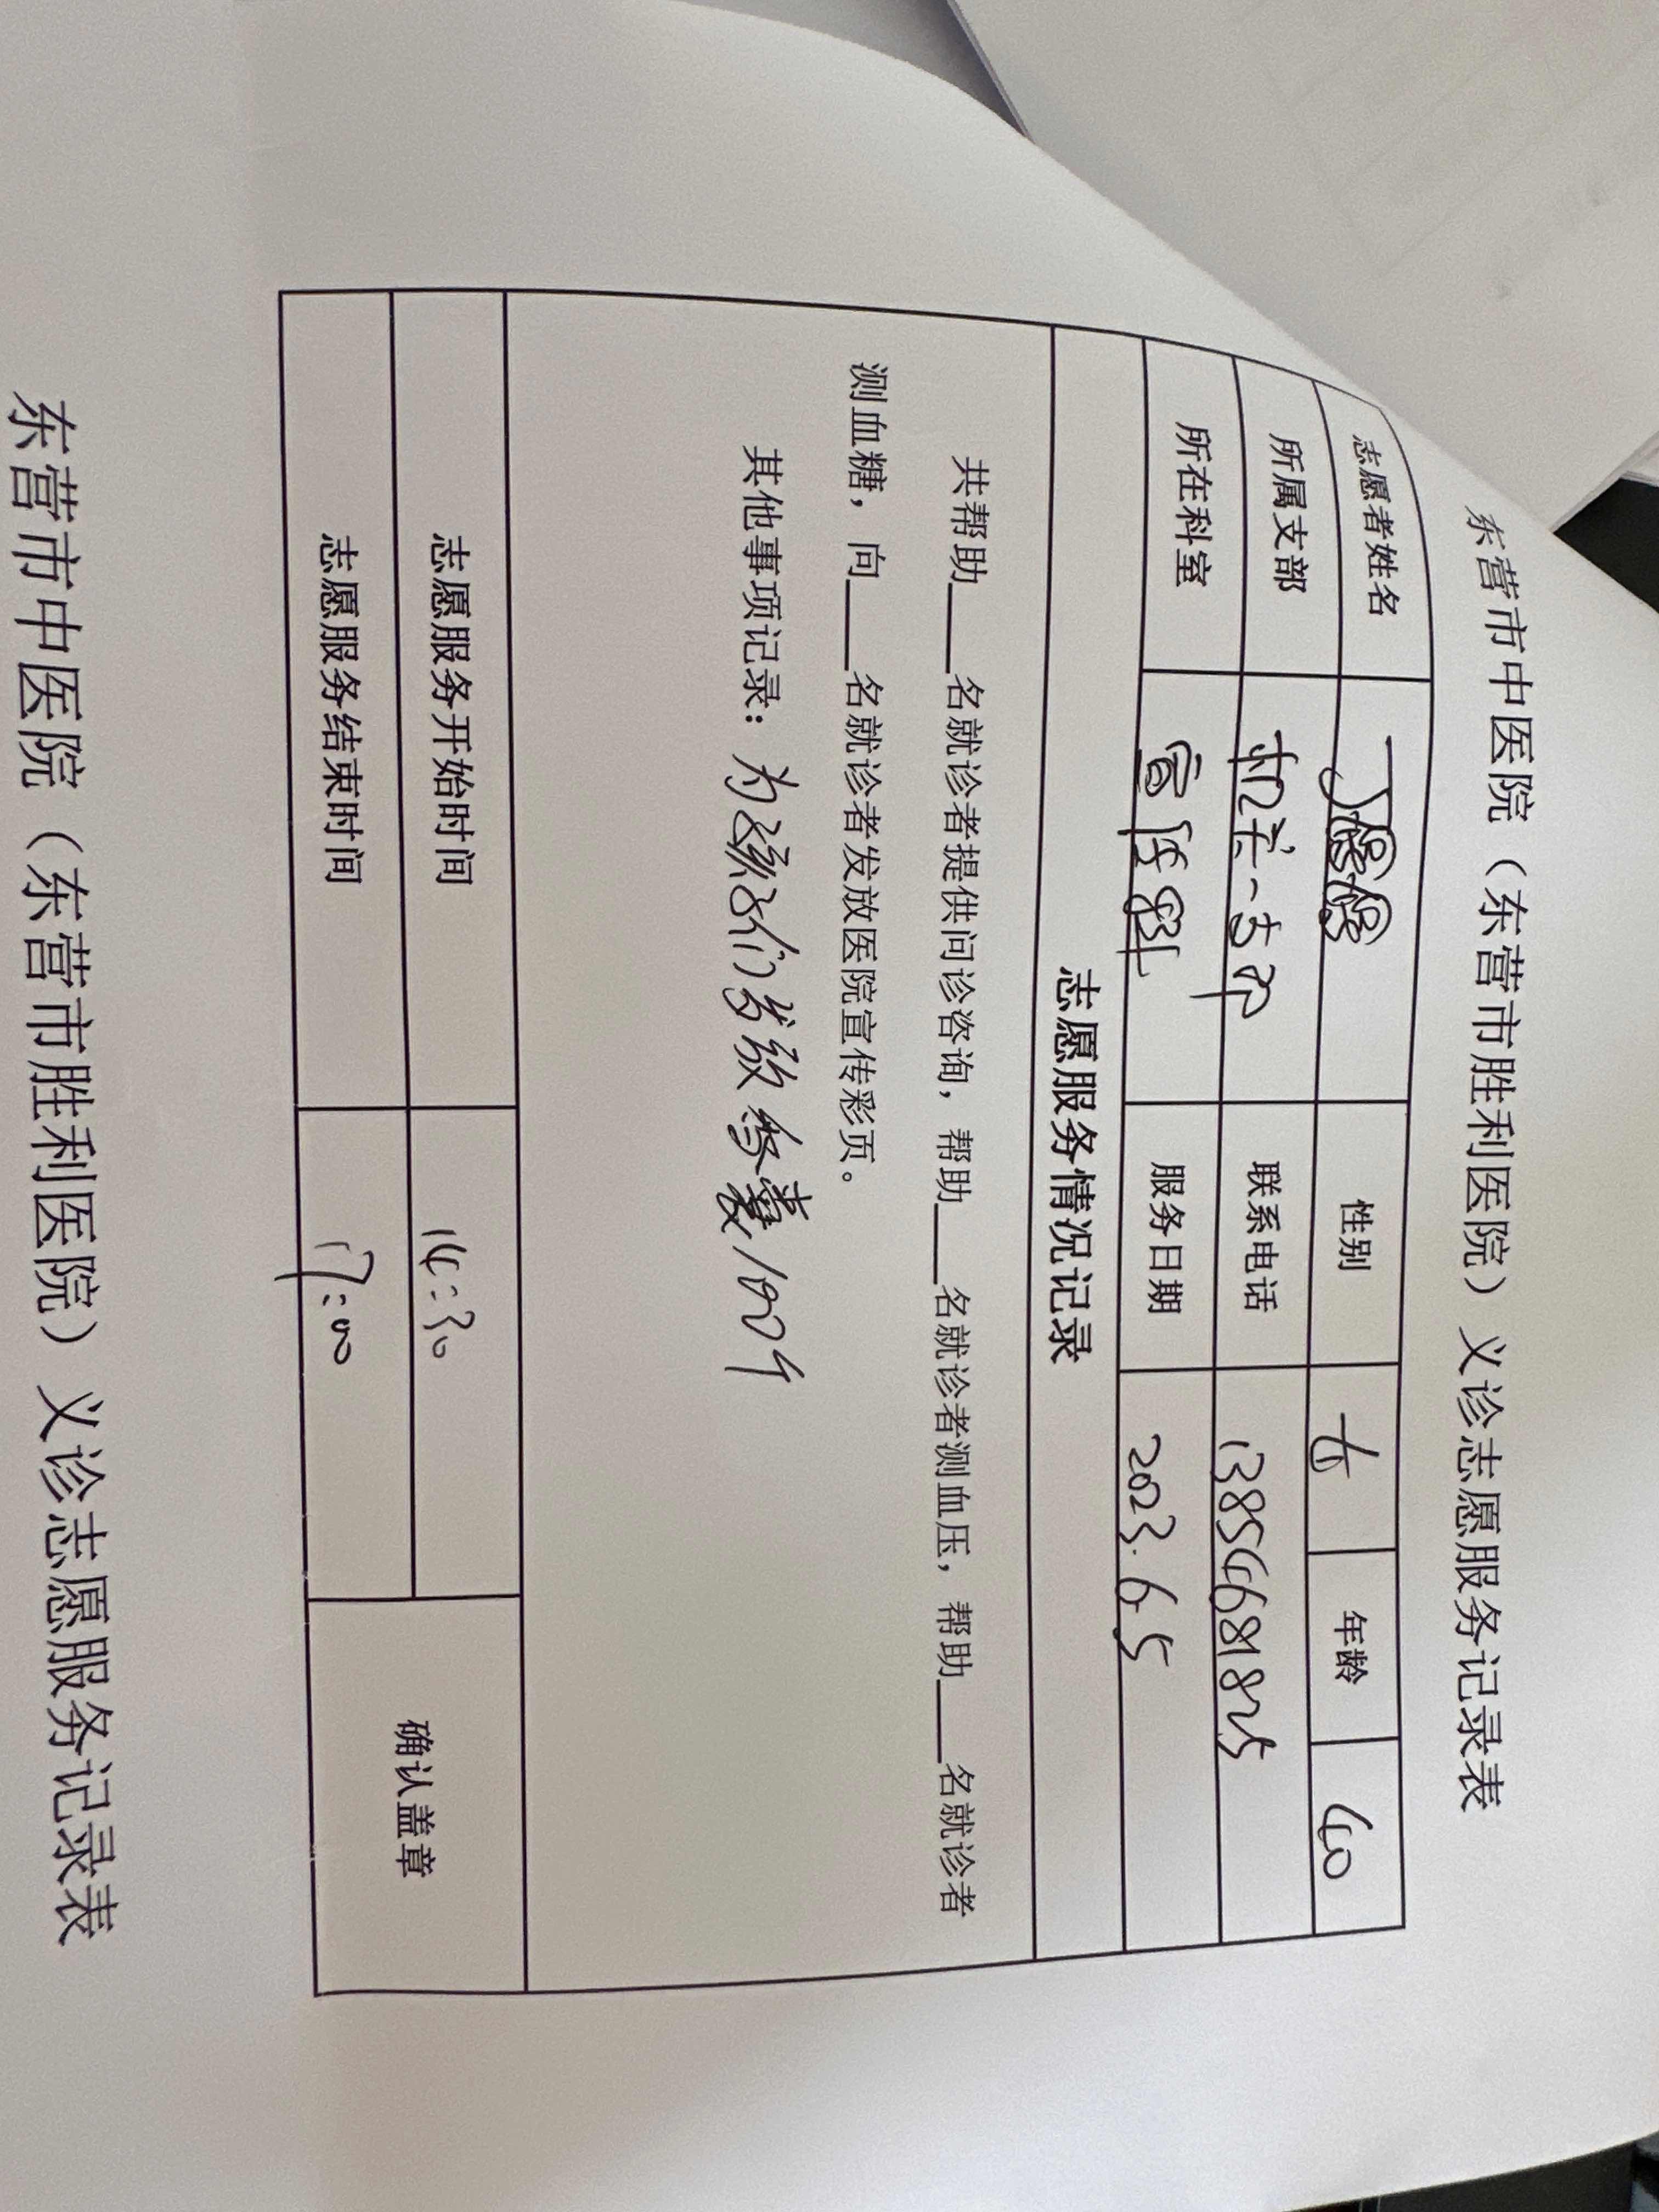 东营市中医院（东营市胜利医院）义诊志愿服务记录表
志愿者姓名 丁 性别 女 年龄 40
所属支部 机关一支部 联系电话 13854681825
所在科室 宣传科 服务日期 2023.6.5
志愿服务情况记录
共帮助____名就诊者提供问诊咨询，帮助____名就诊者测血压，帮助____名就诊者
测血糖，向____名就诊者发放医院宣传彩页。
其他事项记录：为孩子们发放香囊100个
志愿服务开始时间 14:30 确认盖章
志愿服务结束时间 17:00
东营市中医院（东营市胜利医院）义诊志愿服务记录表